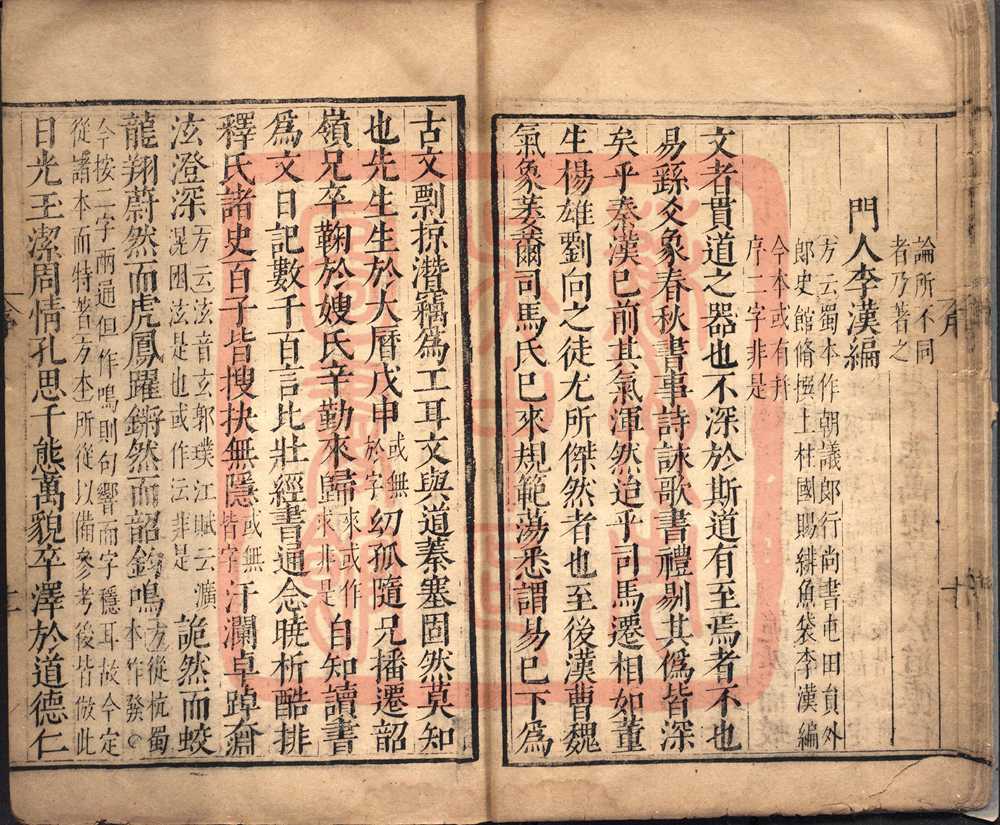 論所不同
者乃著之
門人李漢編
方云蜀本作朝議郎行尚書屯田員外
郎史館脩撰上柱國賜緋魚袋李漢編
今本或有并
序二字非是
文者貫道之器也不深於斯道有至焉者不也
易繇爻象春秋書事詩詠歌書禮剔其偽皆深
矣乎秦漢已前其氣渾然迨乎司馬遷相如董
生楊雄劉向之徒尤所傑然者也至後漢曹魏
氣象萎薾司馬氏已來規範蕩悉謂易已下為
古文剽掠潛竊為工耳文與道蓁塞固然莫知
也先生生於大曆戊申或無於字幼孤隨兄播遷韶
嶺兄卒鞠於嫂氏辛勤來歸來或作求非是自知讀書
為文日記數千百言比壯經書通念曉析酷排
釋氏諸史百子皆搜抉無隱或無皆字汗瀾卓踔奫
泫澄深方云泫音玄郭璞江賦云瀇滉囦泫是也或作沄非是詭然而蛟
龍翔蔚然而虎鳳躍鏘然而韶鈞鳴方從杭蜀本作發○
今按二字兩通但作鳴則句響而字穩耳故今定
從諸本而特著方本所從以備參考後皆倣此
日光玉潔周情孔思千態萬貌卒澤於道德仁